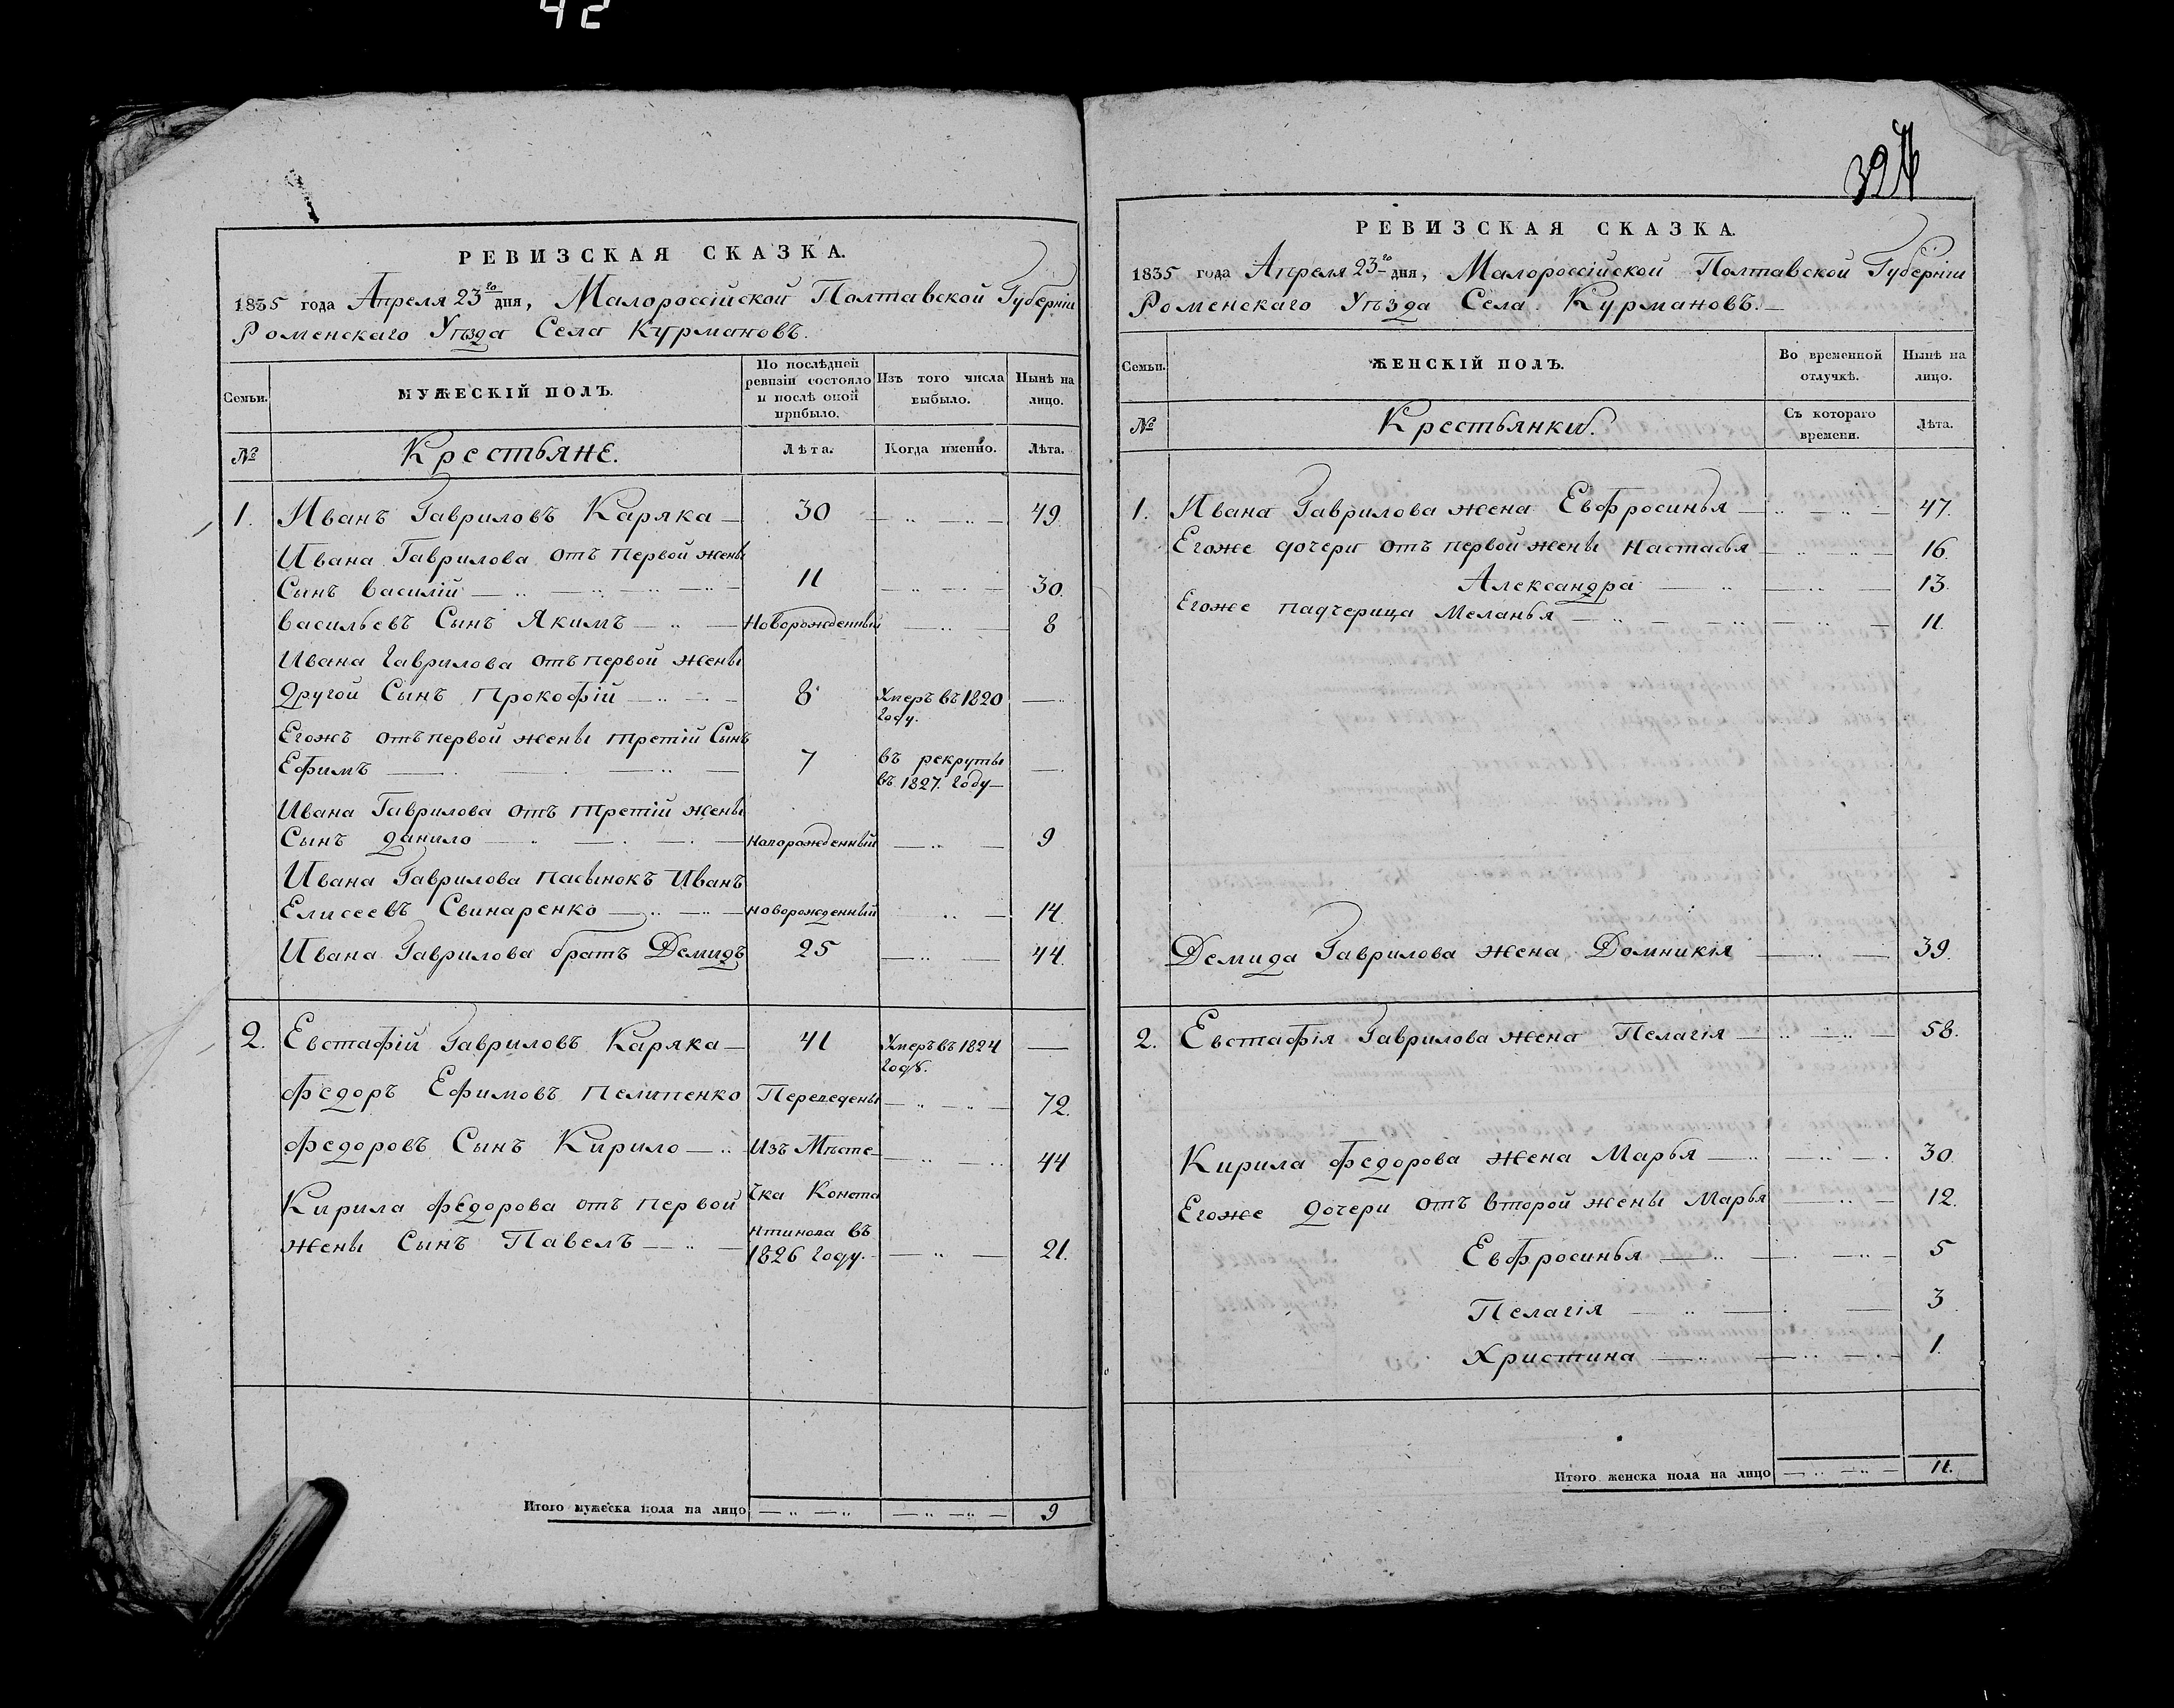 42
РЕВИЗСКАЯ СКАЗКА.
1835 года Апреля 23го дня, Малороссійской Полтавской Губерніи
Роменскаго Уѣзда Села Курмановъ.
Семьи. МУЖЕСКІЙ ПОЛЪ. По послѣдней ревизіи состояло и послѣ оной прибыло. Изъ того числа выбыло. Нынѣ на лицо.
№ Крестьяне. Лѣта. Когда именно. Лѣта.
1. Иванъ Гавриловъ Каряка 30 49.
Ивана Гаврилова отъ первой жены
Сынъ Василій 11 30.
Васильевъ Сынъ Якимъ Новорожденный 8
Ивана Гаврилова отъ первой жены
другой Сынъ Прокофій 8 Умеръ въ 1820
году.
Егожъ отъ первой жены третій Сынъ
Ефимъ 7 въ рекруты
въ 1827. году
Ивана Гаврилова отъ третій жены
Сынъ данило новорожденный 9
Ивана Гаврилова пасынокъ Иванъ
Елисеевъ Свинаренко новорожденный 14.
Ивана Гаврилова братъ Демидъ 25 44.
2. Евстафій Гавриловъ Каряка 41 Умеръ въ 1824
году.
Федоръ Ефимовъ Пелипенко Переведены 72.
Федоровъ Сынъ Кирило Изъ Мѣсте- 44
Кирила Федорова отъ первой чка Конста
жены Сынъ Павелъ нтинова въ
1826 году. 21.
Итого мужеска пола на лицо 9
394
РЕВИЗСКАЯ СКАЗКА.
1835 года Апреля 23го дня, Малороссійской Полтавской Губерніи
Роменскаго Уѣзда Села Курмановъ.
Семьи. ЖЕНСКІЙ ПОЛЪ. Во временной отлучкѣ. Нынѣ на лицо.
№ Крестьянки. Съ котораго времени. Лѣта.
1. Ивана Гаврилова жена Евфросинья 47.
Егоже дочери отъ первой жены Настасья 16.
Александра 13.
Егоже падчерица Меланья 11.
Демида Гаврилова жена Домникія 39.
2. Евстафія Гаврилова жена Пелагія 58.
Кирила Федорова жена Марья 30.
Егоже дочери отъ второй жены Марья 12.
Евфросинья 5
Пелагія 3
Христина 1.
Итого женска пола на лицо 11.